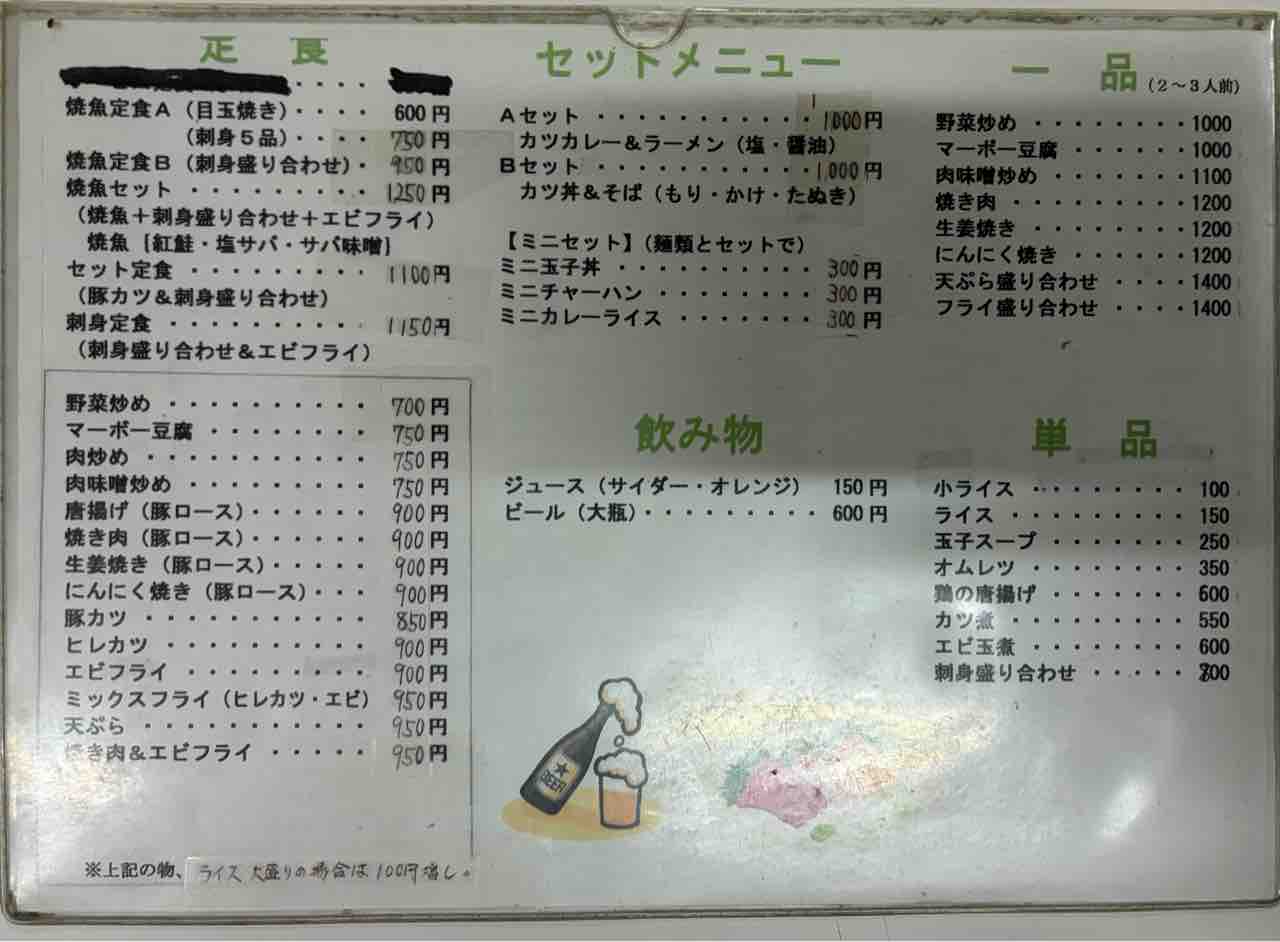 定食
焼魚定食A（目玉焼き）・・・・ 600円
（刺身５品）・・・・ 750円
焼魚定食B（刺身盛り合わせ）・ 950円
焼魚セット ・・・・・・・・・ 1250円
（焼魚＋刺身盛り合わせ＋エビフライ）
焼魚［紅鮭・塩サバ・サバ味噌］
セット定食 ・・・・・・・・・ 1100円
（豚カツ＆刺身盛り合わせ）
刺身定食 ・・・・・・・・・・ 1150円
（刺身盛り合わせ＆エビフライ）
野菜炒め ・・・・・・・・・・ 700円
マーボー豆腐 ・・・・・・・・ 750円
肉炒め ・・・・・・・・・・・ 750円
肉味噌炒め ・・・・・・・・・ 750円
唐揚げ（豚ロース）・・・・・・ 900円
焼き肉（豚ロース）・・・・・・ 900円
生姜焼き（豚ロース）・・・・・ 900円
にんにく焼き（豚ロース）・・・ 900円
豚カツ ・・・・・・・・・・・ 850円
ヒレカツ ・・・・・・・・・・ 900円
エビフライ ・・・・・・・・・ 900円
ミックスフライ（ヒレカツ・エビ） 950円
天ぷら ・・・・・・・・・・・ 950円
焼き肉＆エビフライ ・・・・・ 950円
※上記の物、ライス大盛りの場合は100円増し。
セットメニュー
Aセット ・・・・・・・・・・ 1000円
カツカレー＆ラーメン（塩・醤油）
Bセット ・・・・・・・・・・ 1000円
カツ丼＆そば（もり・かけ・たぬき）
【ミニセット】（麺類とセットで）
ミニ玉子丼 ・・・・・・・・・ 300円
ミニチャーハン ・・・・・・・ 300円
ミニカレーライス ・・・・・・ 300円
飲み物
ジュース（サイダー・オレンジ） 150円
ビール（大瓶）・・・・・・・・・ 600円
一品（２～３人前）
野菜炒め ・・・・・・・・1000
マーボー豆腐 ・・・・・・1000
肉味噌炒め ・・・・・・・1100
焼き肉 ・・・・・・・・・1200
生姜焼き ・・・・・・・・1200
にんにく焼き ・・・・・・1200
天ぷら盛り合わせ ・・・・1400
フライ盛り合わせ ・・・・1400
単品
小ライス ・・・・・・・・ 100
ライス ・・・・・・・・・ 150
玉子スープ ・・・・・・・ 250
オムレツ ・・・・・・・・ 350
鶏の唐揚げ ・・・・・・・ 600
カツ煮 ・・・・・・・・・ 550
エビ玉煮 ・・・・・・・・ 600
刺身盛り合わせ ・・・・・
BEER